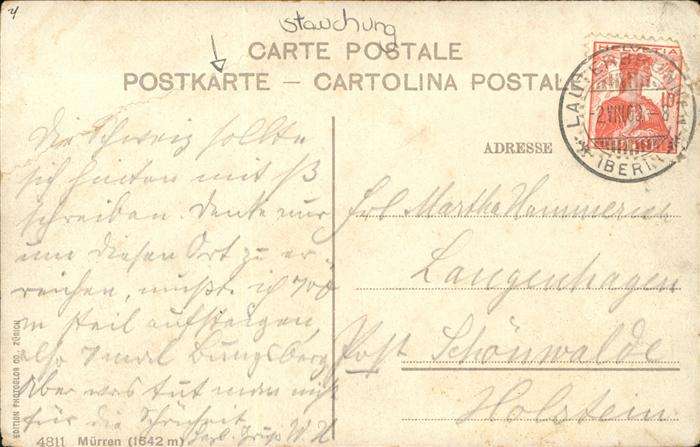 4
Stauchung
CARTE POSTALE
POSTKARTE — CARTOLINA POSTALE
HELVETIA
LAUTERBRUNNEN
-2.VIII.09. 8
(BERN)
ADRESSE
Die Schweiz sollte
sich hinten mit ß
schreiben. Denke nur
um diesen Ort zu er-
reichen, mußt. ich 700
m steil aufsteigen,
also 7 mal Bungsberg
Aber was tut man nicht
für die Schönheit
Herzl. Grüße W. H
Frl Martha Hammerich
Langenhagen
Post Schönwalde
Holstein
EDITION PHOTOGLOB CO. ZÜRICH
4811 Mürren (1642 m)